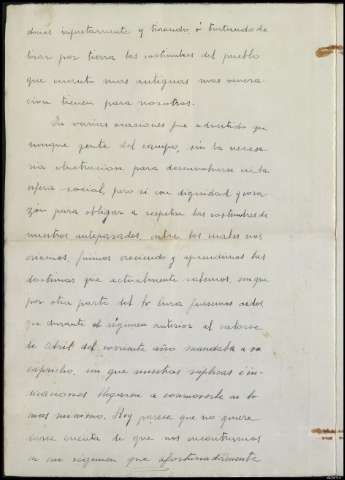 donos injustamente y tirando, ó tratando de
tirar por tierra las costumbres del pueblo
que cuanto mas antiguas mas venera-
cion tienen para nosotros.
En varias ocasiones fue advertido que
aunque gente del campo, sin la necesa-
ria instruccion para desenvolverse en la
esfera social, pero si con dignidad y cora-
zón para obligar a respetar las costumbres de
nuestros antepasados, entre los cuales nos
criamos, fuimos creciendo y aprendimos las
doctrinas que actualmente sabemos, sin que
por otra parte del Sr Cura fuesemos oidos
que durante el régimen anterior al catorce
de Abril del corriente año mandaba a su
capricho, sin que nuestras suplicas é in-
dicaciones llegasen a conmoverle ni lo
mas minimo. Hoy parece que no quiere
darse cuenta de que nos encontramos
en un régimen que afortunadamente